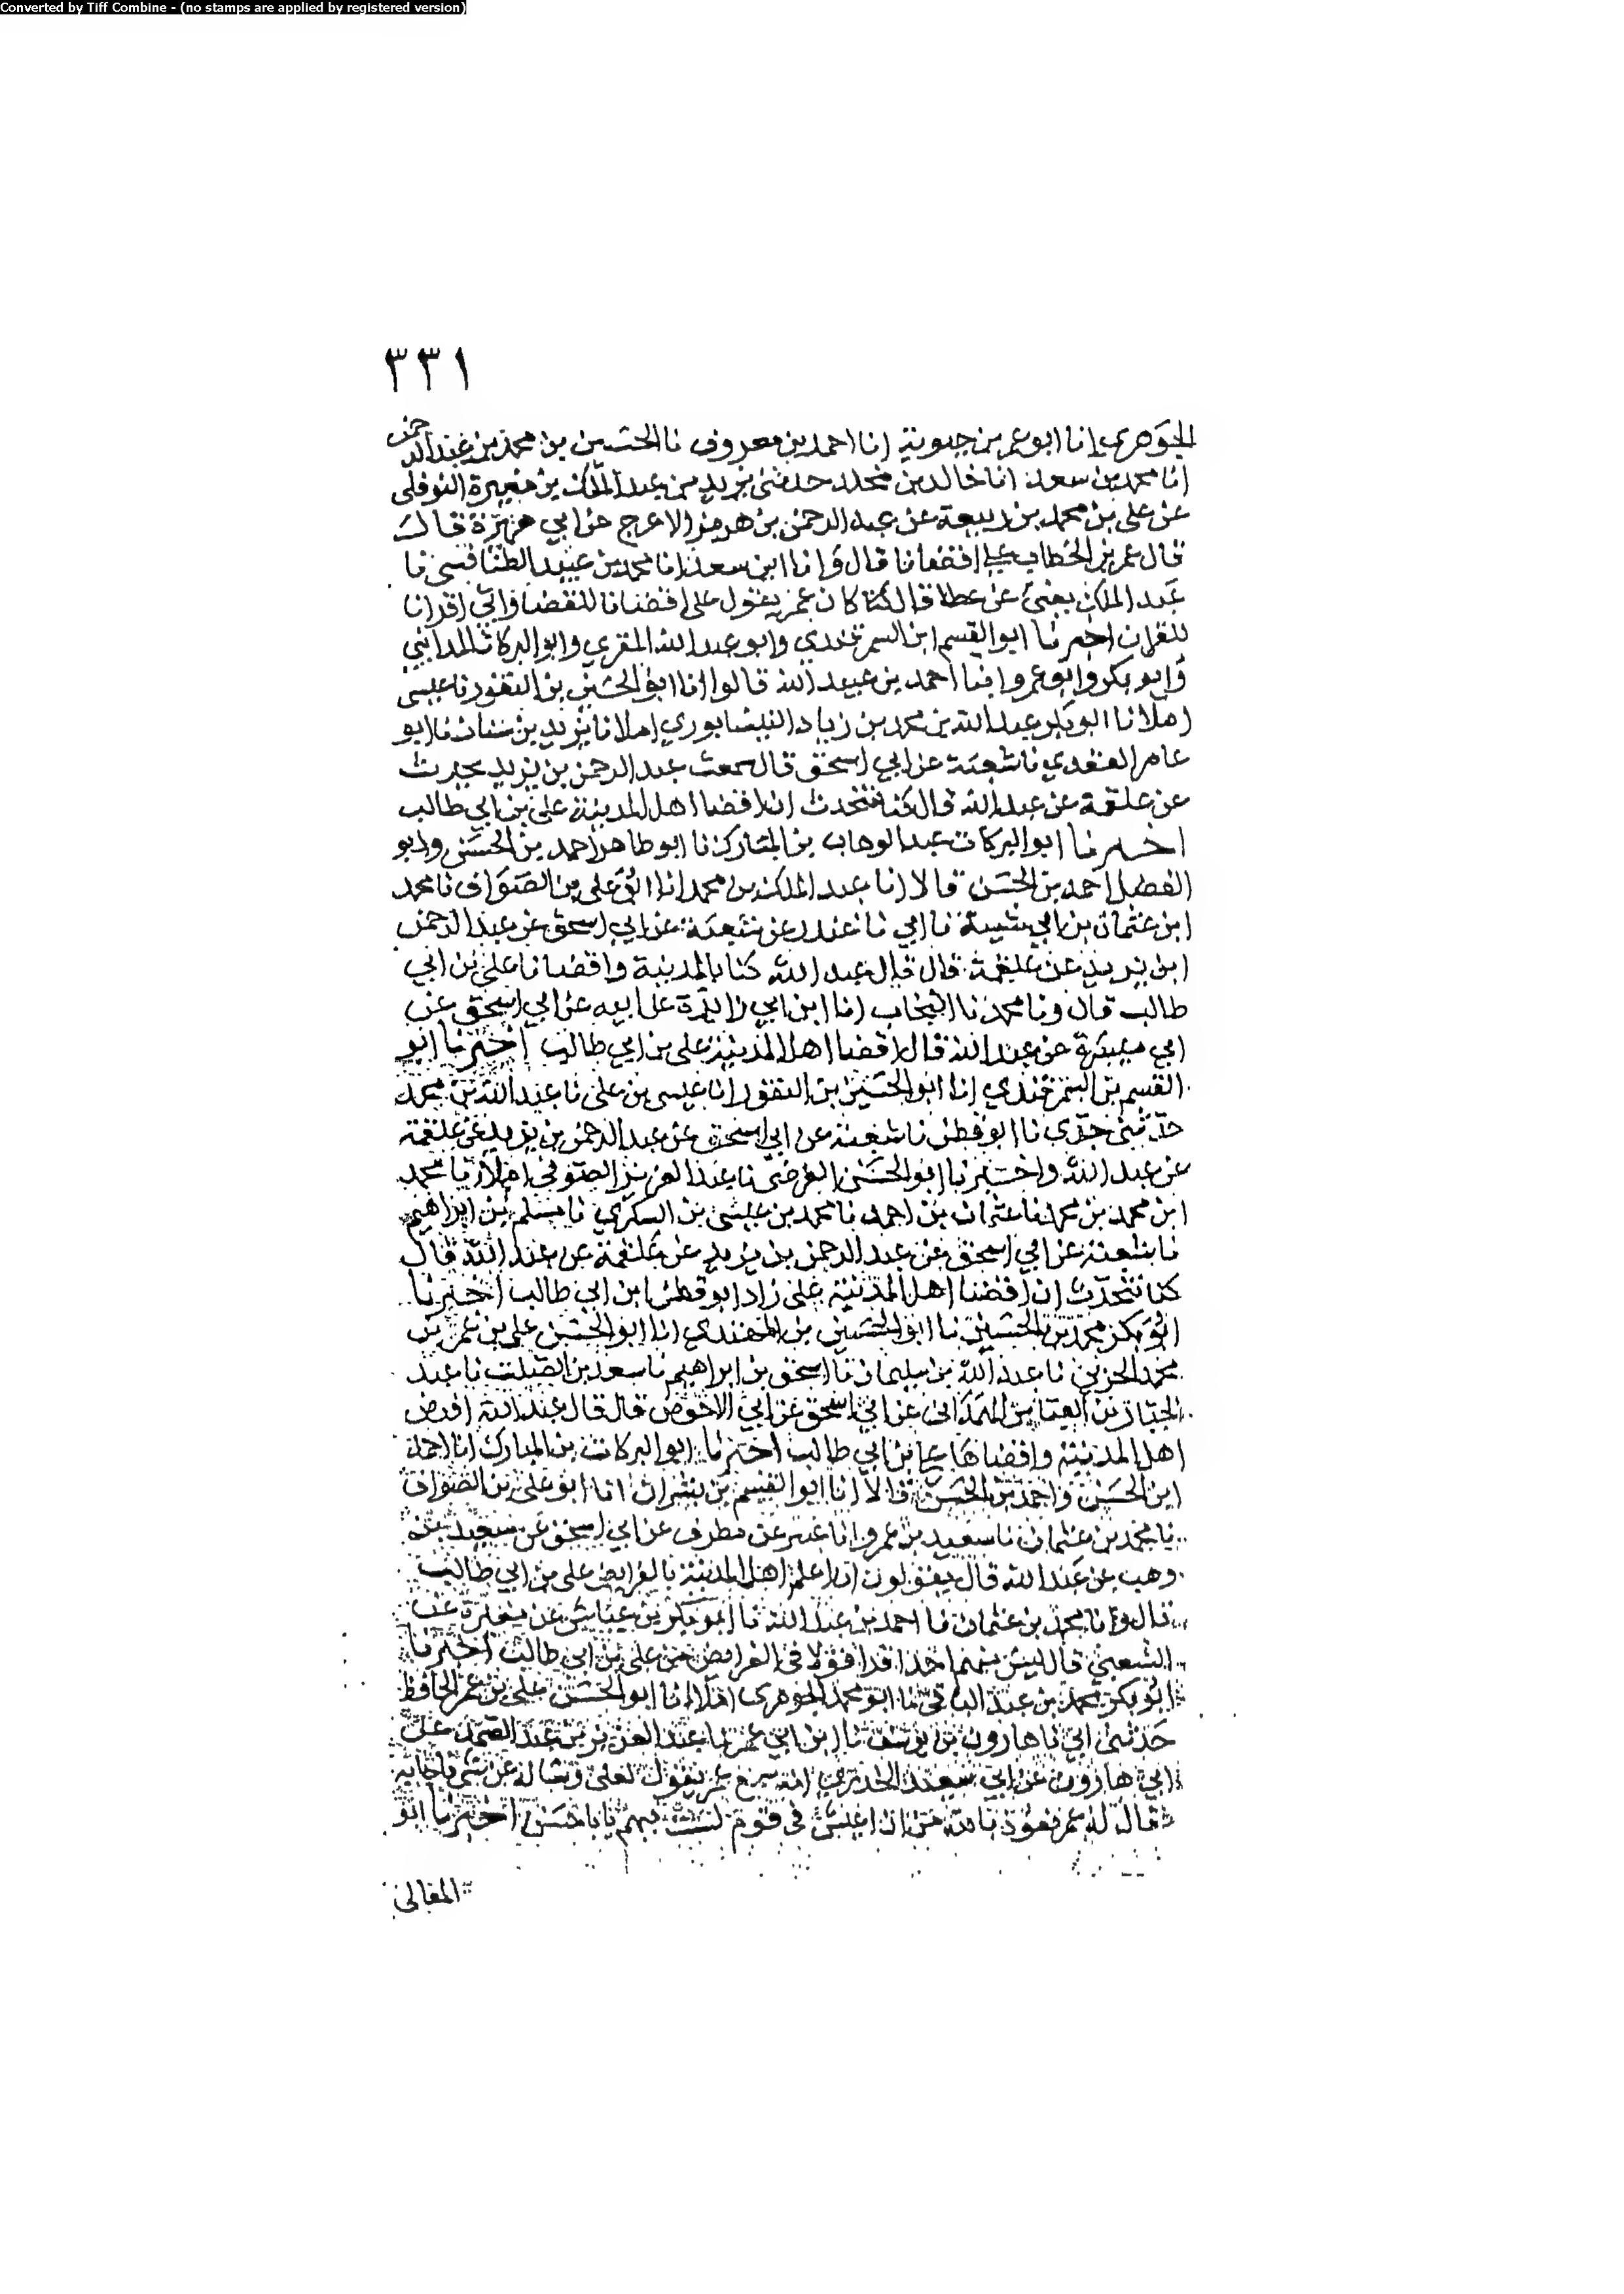 Converted by Tiff Combine - (no stamps are applied by registered version)
٣٣١
الجوهري انا ابو عمر بن حيوية انا احمد بن معروف نا الحسين بن محمد بن عبد الرحمن
انا محمد بن سعد انا خالد بن مخلد حدثني يزيد بن عبد الملك بن مغيرة النوفلي
عن علي بن محمد بن ربيعة عن عبد الرحمن بن هرمز الاعرج عن ابي هريرة قال
قال عمر بن الخطاب علي اقضانا قال وانا ابن سعد انا محمد بن عبيد الطنافسي نا
عبد الملك يعني عن عطا قال كان عمر يقول علي اقضانا للقضا وابي اقرانا
للقران اخبرنا ابو القسم ابن السمرقندي وابو عبد الله المقري وابو البركات المدايني
وابو بكر وابو عمرو ابنا احمد بن عبيد الله قالوا انا ابو الحسين بن النقور نا عيسى
املا نا ابو بكر عبد الله بن محمد بن زياد النيسابوري املا نا يزيد بن سنان نا ابو
عامر العقدي نا شعبة عن ابي اسحق قال سمعت عبد الرحمن بن يزيد يحدث
عن علقمة عن عبد الله قال كنا نتحدث ان اقضا اهل المدينة علي بن ابي طالب
اخبرنا ابو البركات عبد الوهاب بن المبارك نا ابو طاهر احمد بن الحسن وابو
الفضل احمد بن الحسن قالا انا عبد الملك بن محمد انا ابو علي بن الصواف نا محمد
ابن عثمان بن ابي شيبة نا ابي نا غندر عن شعبة عن ابي اسحق عن عبد الرحمن
ابن يزيد عن علقمة قال قال عبد الله كنا بالمدينة واقضانا علي بن ابي
طالب قال ونا محمد نا المنجاب انا ابن ابي زايدة عن ابيه عن ابي اسحق عن
ابي ميسرة عن عبد الله قال اقضا اهل المدينة علي بن ابي طالب اخبرنا ابو
القسم بن السمرقندي انا ابو الحسين بن النقور انا عيسى بن علي نا عبد الله بن محمد
حدثني جدي نا ابو قطن نا شعبة عن ابي اسحق عن عبد الرحمن بن يزيد عن علقمة
عن عبد الله واخبرنا ابو الحسن الفرضي نا عبد العزيز الصوفي املا نا محمد
ابن محمد بن محمد نا عثمان بن احمد نا محمد بن عيسى بن السكري نا مسلم بن ابراهيم
نا شعبة عن ابي اسحق عن عبد الرحمن بن يزيد عن علقمة عن عبد الله قال
كنا نتحدث ان اقضا اهل المدينة علي زاد ابو قطن ابن ابي طالب اخبرنا
ابو بكر محمد بن الحسين نا ابو الحسين بن المهتدي انا ابو الحسن علي بن عمر بن
محمد الحربي نا عبد الله بن سليمان نا اسحق بن ابراهيم نا سعد بن الصلت نا عبد
الجبار بن العباس الهمداني عن ابي اسحق عن ابي الاحوص قال قال عبد الله افرض
اهل المدينة واقضاها علي بن ابي طالب اخبرنا ابو البركات بن المبارك انا احمد
ابن الحسن واحمد بن الحسن قالا انا ابو القسم بن بشران انا ابو علي بن الصواف
نا محمد بن عثمان نا سعيد بن عمرو انا عبثر عن مطرف عن ابي اسحق عن سعيد بن
وهب عن عبد الله قال يقولون ان اعلم اهل المدينة بالفرايض علي بن ابي طالب
قال ونا محمد بن عثمان نا احمد بن عبد الله نا ابو بكر بن عياش عن مغيرة عن
الشعبي قال ليس منهم احدا قوى قولا في الفرايض من علي بن ابي طالب اخبرنا
ابو بكر محمد بن عبد الباقي نا ابو محمد الجوهري املا انا ابو الحسن علي بن عمر الحافظ
حدثني ابي نا هارون بن يوسف نا ابن ابي عمر نا عبد العزيز بن عبد الصمد عن
ابي هارون عن ابي سعيد الخدري انه سمع عمر يقول لعلي وساله عن شي فاجابه
فقال له عمر نعوذ بالله من ان اعيش في قوم لست فيهم يا با حسن اخبرنا ابو
المعالي